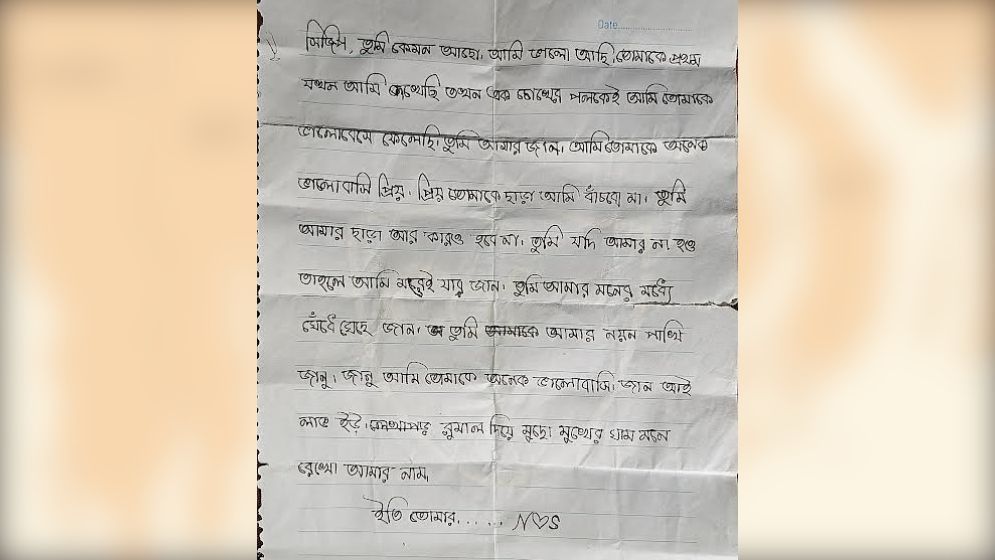 Date
তুমি কেমন আছো। আমি ভালো আছি। তোমাকে প্রথম
যখন আমি দেখেছি তখন এক চোখের পলকেই আমি তোমাকে
ভালোবেসে ফেলেছি। তুমি আমার জান। আমি তোমাকে অনেক
ভালোবাসি প্রিয়। প্রিয় তোমাকে ছাড়া আমি বাঁচবো না। তুমি
আমার ছাড়া আর কারও হবে না। তুমি যদি আমার না হও
তাহলে আমি মরেই যাব জান। তুমি আমার মনের মধ্যে
জান। তুমি আমার নয়ন পাখি
জানু। জানু আমি তোমাকে অনেক ভালোবাসি। জান আই
লাভ ইউ। রুমাল দিয়ে মুছো মুখের ঘাম মনে
রেখো আমার নাম,
ইতি তোমার...... N♡S